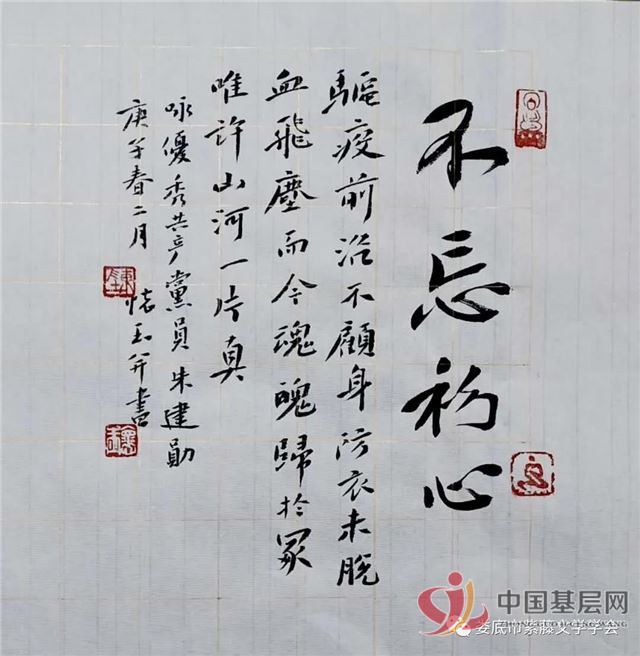 不忘初心
驅疫前沿不顧身防衣未脫
血飛塵而今魂魄歸於冢
唯許山河一片真
咏優秀共產黨員朱建勛
庚子春二月 懷玉并書
中国基层网
ZHONGGUOJICENGWANG
娄底市紫藤文学学会